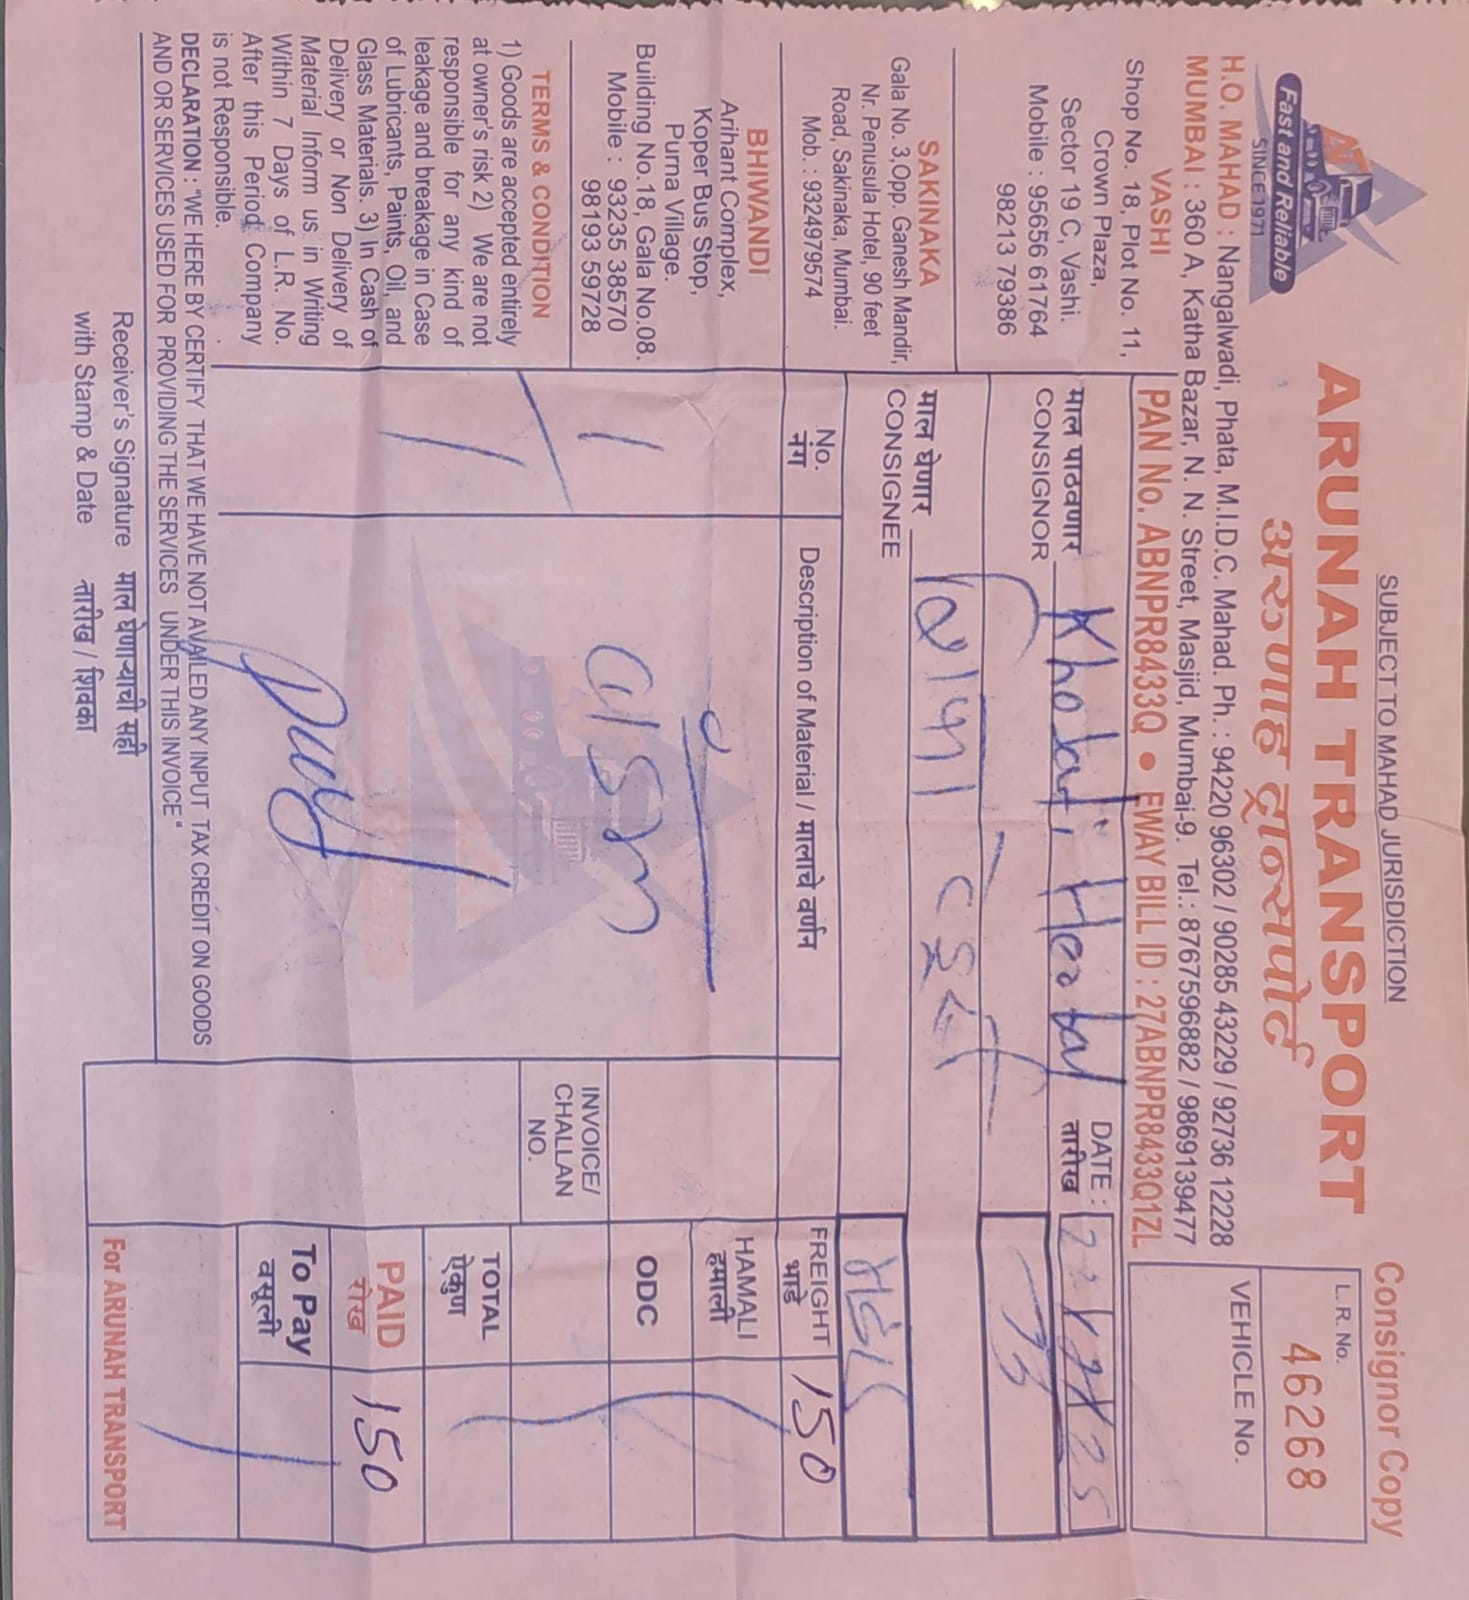 SUBJECT TO MAHAD JURISDICTION
Consignor Copy
AT
Fast and Reliable
SINCE 1971
ARUNAH TRANSPORT
अरुणाह ट्रान्सपोर्ट
L. R. No.
46268
VEHICLE No.
H.O. MAHAD : Nangalwadi, Phata, M.I.D.C. Mahad. Ph. : 94220 96302 / 90285 43229 / 92736 12228
MUMBAI : 360 A, Katha Bazar, N. N. Street, Masjid, Mumbai-9. Tel.: 8767596882 / 9869139477
PAN No. ABNPR8433Q • EWAY BILL ID : 27ABNPR8433Q1ZL
VASHI
Shop No. 18, Plot No. 11,
Crown Plaza,
Sector 19 C, Vashi.
Mobile : 95656 61764
98213 79386
SAKINAKA
Gala No. 3,Opp. Ganesh Mandir,
Nr. Penusula Hotel, 90 feet
Road, Sakinaka, Mumbai.
Mob. : 9324979574
BHIWANDI
Arihant Complex,
Koper Bus Stop,
Purna Village.
Building No.18, Gala No.08.
Mobile : 93235 38570
98193 59728
TERMS & CONDITION
1) Goods are accepted entirely
at owner's risk 2) We are not
responsible for any kind of
leakage and breakage in Case
of Lubricants, Paints, Oil, and
Glass Materials. 3) In Cash of
Delivery or Non Delivery of
Material Inform us in Writing
Within 7 Days of L.R. No.
After this Period Company
is not Responsible.
माल पाठवणार Khodal Herbal
CONSIGNOR
DATE :
तारीख
माल घेणार
CONSIGNEE
No.
नंग
Description of Material / मालाचे वर्णन
1
INVOICE/
CHALLAN
NO.
FREIGHT 150
भाडे
HAMALI
हमाली
ODC
TOTAL
ऐकुण
PAID 150
रोख
To Pay
वसूली
DECLARATION : "WE HERE BY CERTIFY THAT WE HAVE NOT AVAILED ANY INPUT TAX CREDIT ON GOODS
AND OR SERVICES USED FOR PROVIDING THE SERVICES UNDER THIS INVOICE "
Receiver's Signature माल घेणाऱ्याची सही
with Stamp & Date तारीख / शिक्का
For ARUNAH TRANSPORT